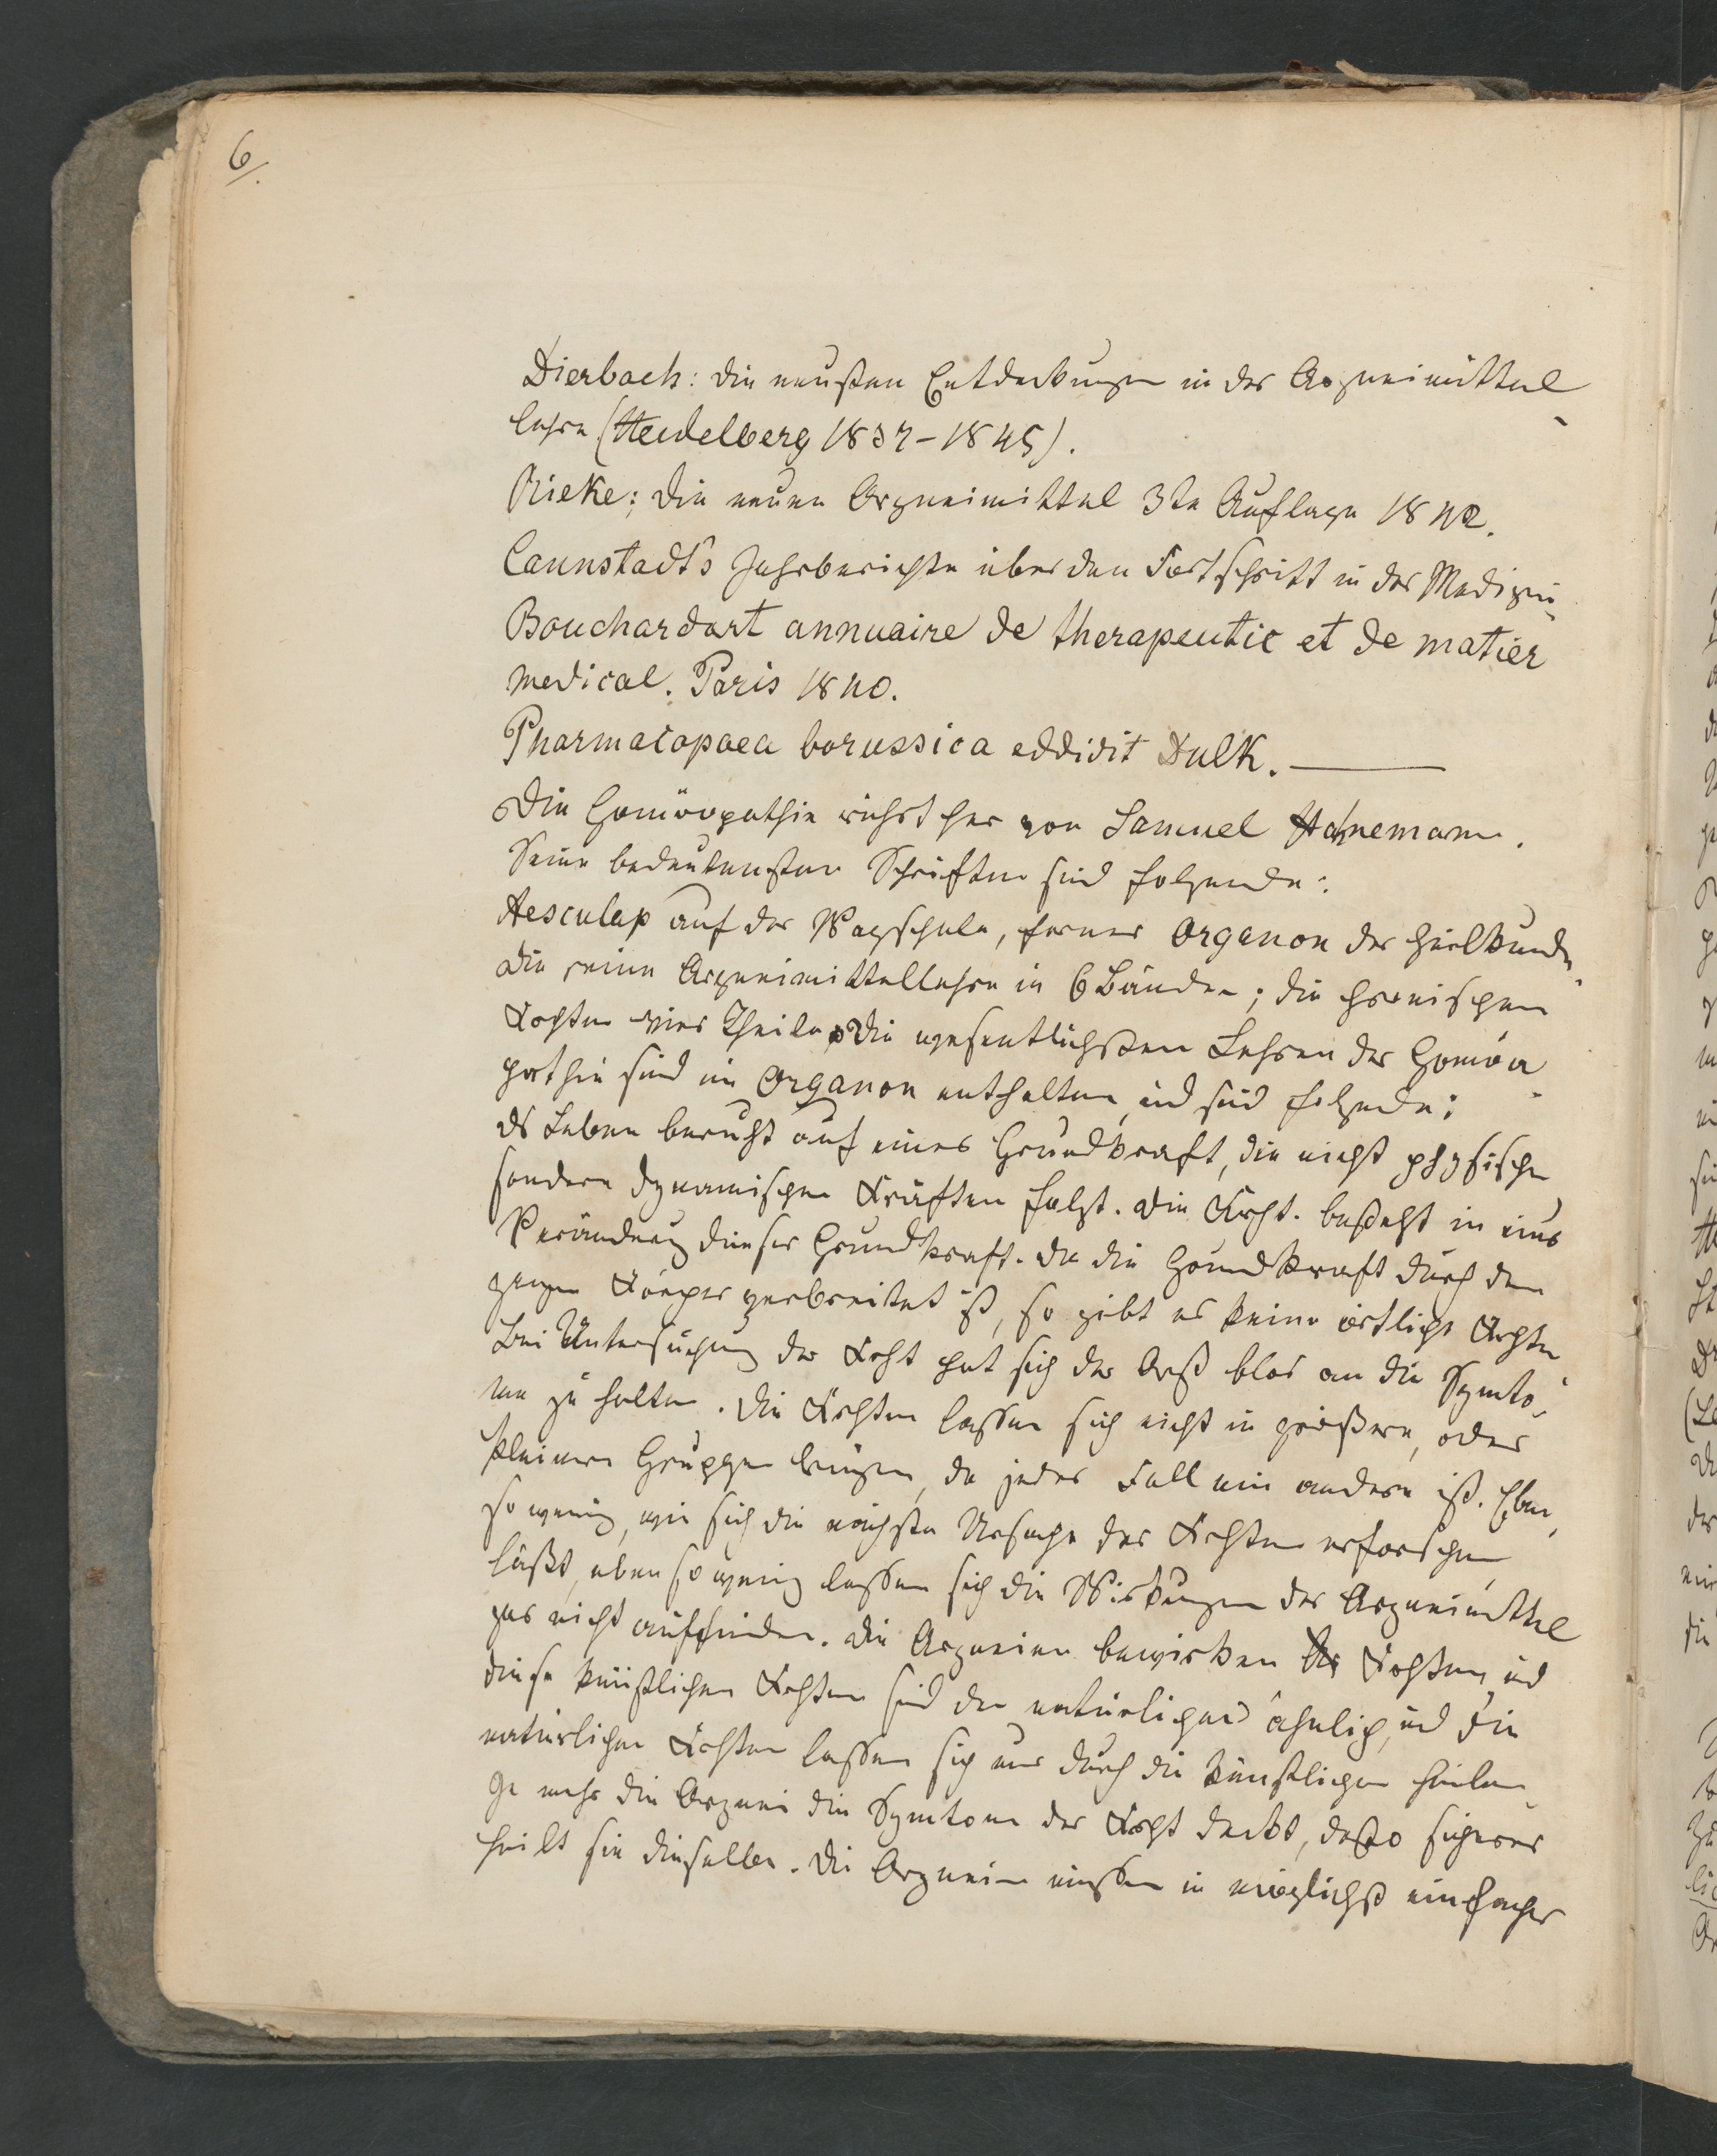 6/.
Dierbach: die neusten Entdeckungen in der Arzneimittel
lehre (Heidelberg 1837-1845).
Rieke: die neuen Arzneimittel 3te Auflage 1842.
Cannstadt's Jahrberichte über den Fortschritt in der Medizin
Bouchardart annuaire de therapeutic et de matier
medical. Paris 1840.
Pharmacopaea borussica eddidit Dulk. —
Die Homöopathie rührt her von Samuel Hahnemann.
Seine bedeutensten Schriften sind folgende:
Aesculap auf der Wagschale, ferner Organon der Heilkunde
die reine Arzneimittellehre in 6 Bänden; die chronischen
Krkhten vier Theile. Die wesentlichsten Lehren der Homöo
pathie sind im Organon enthalten, und sind folgende:
ds Leben beruht auf einer Grundkraft, die nicht physische
sondern dynamischen Kräften folgt. Die Krkht. besteht in einer
Verändrung dieser Grundkraft. Da die Grundkraft durch den
ganzen Körper verbreitet ist, so gibt es keine örtliche Krkhten
Bei Untersuchung der Krkht hat sich der Arzt blos an die Symto-
me zu halten. Die Krkhten lassen sich nicht in größere, oder
kleinere Gruppen bringen, da jeder Fall ein andere ist. Eben
so wenig, wie sich die nächste Ursache der Krkhten erforschen
läßt, eben so wenig lassen sich die Wirkungen der Arzneimittel
gar nicht auffinden. Die Arzneien bewirken Krkhten, und
diese künstlichen Krkhten sind den natürlichen ähnlich, und die
natürlichen Krkhten lassen sich nur durch die künstlichen heilen
Je mehr die Arznei die Symtome der Krkht deckt, desto sicherer
heilt sie dieselbe. Die Arzneien müssen in möglichst einfacher